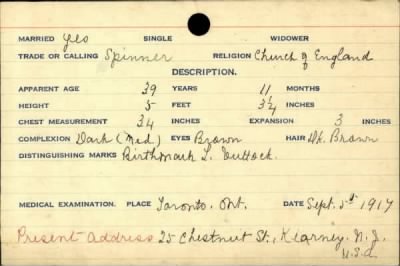 MARRIED Yes SINGLE WIDOWER
TRADE OR CALLING Spinner RELIGION Church of England
DESCRIPTION.
APPARENT AGE 39 YEARS 11 MONTHS
HEIGHT 5 FEET 3 1/4 INCHES
CHEST MEASUREMENT 34 INCHES EXPANSION 3 INCHES
COMPLEXION Dark (Med.) EYES Brown HAIR Dk. Brown
DISTINGUISHING MARKS Birthmark L. Buttock.
MEDICAL EXAMINATION. PLACE Toronto. Ont. DATE Sept. 5th 1917
Present Address 25 Chestnut St., Kearney. N.J.
U.S.A.